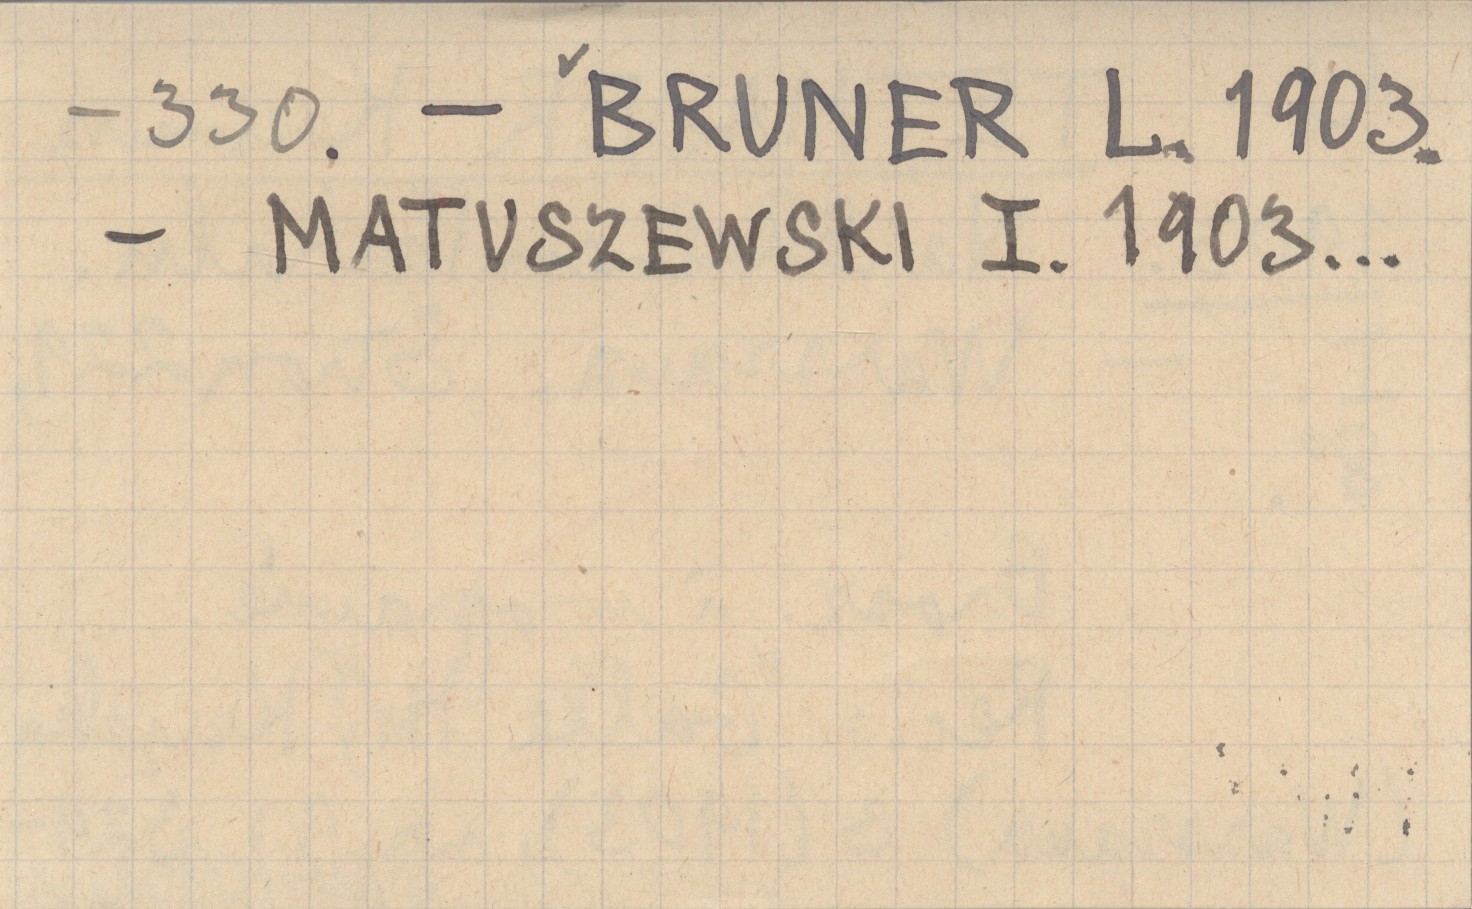 -330. - BRUNER L. 1903.
- MATUSZEWSKI I. 1903...